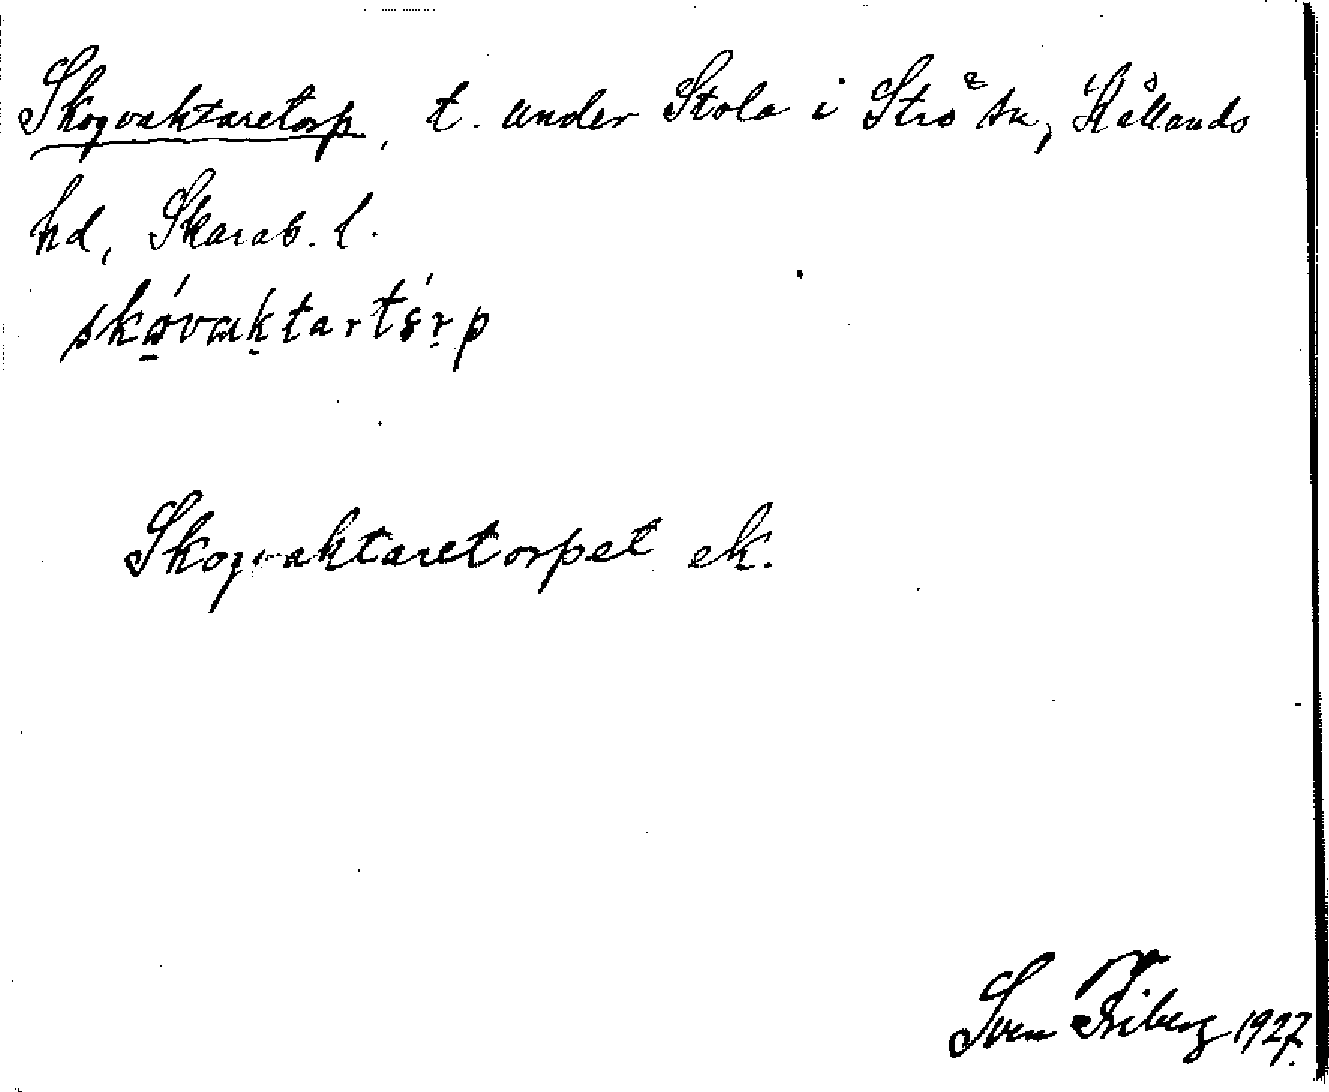 Skogvaktaretorp, t. under Stola i Strö sn, Kållands
hd, Skarab. l.
skóvaktartórp
Skogvaktaretorpet ek.
Sven Friberg 1927.